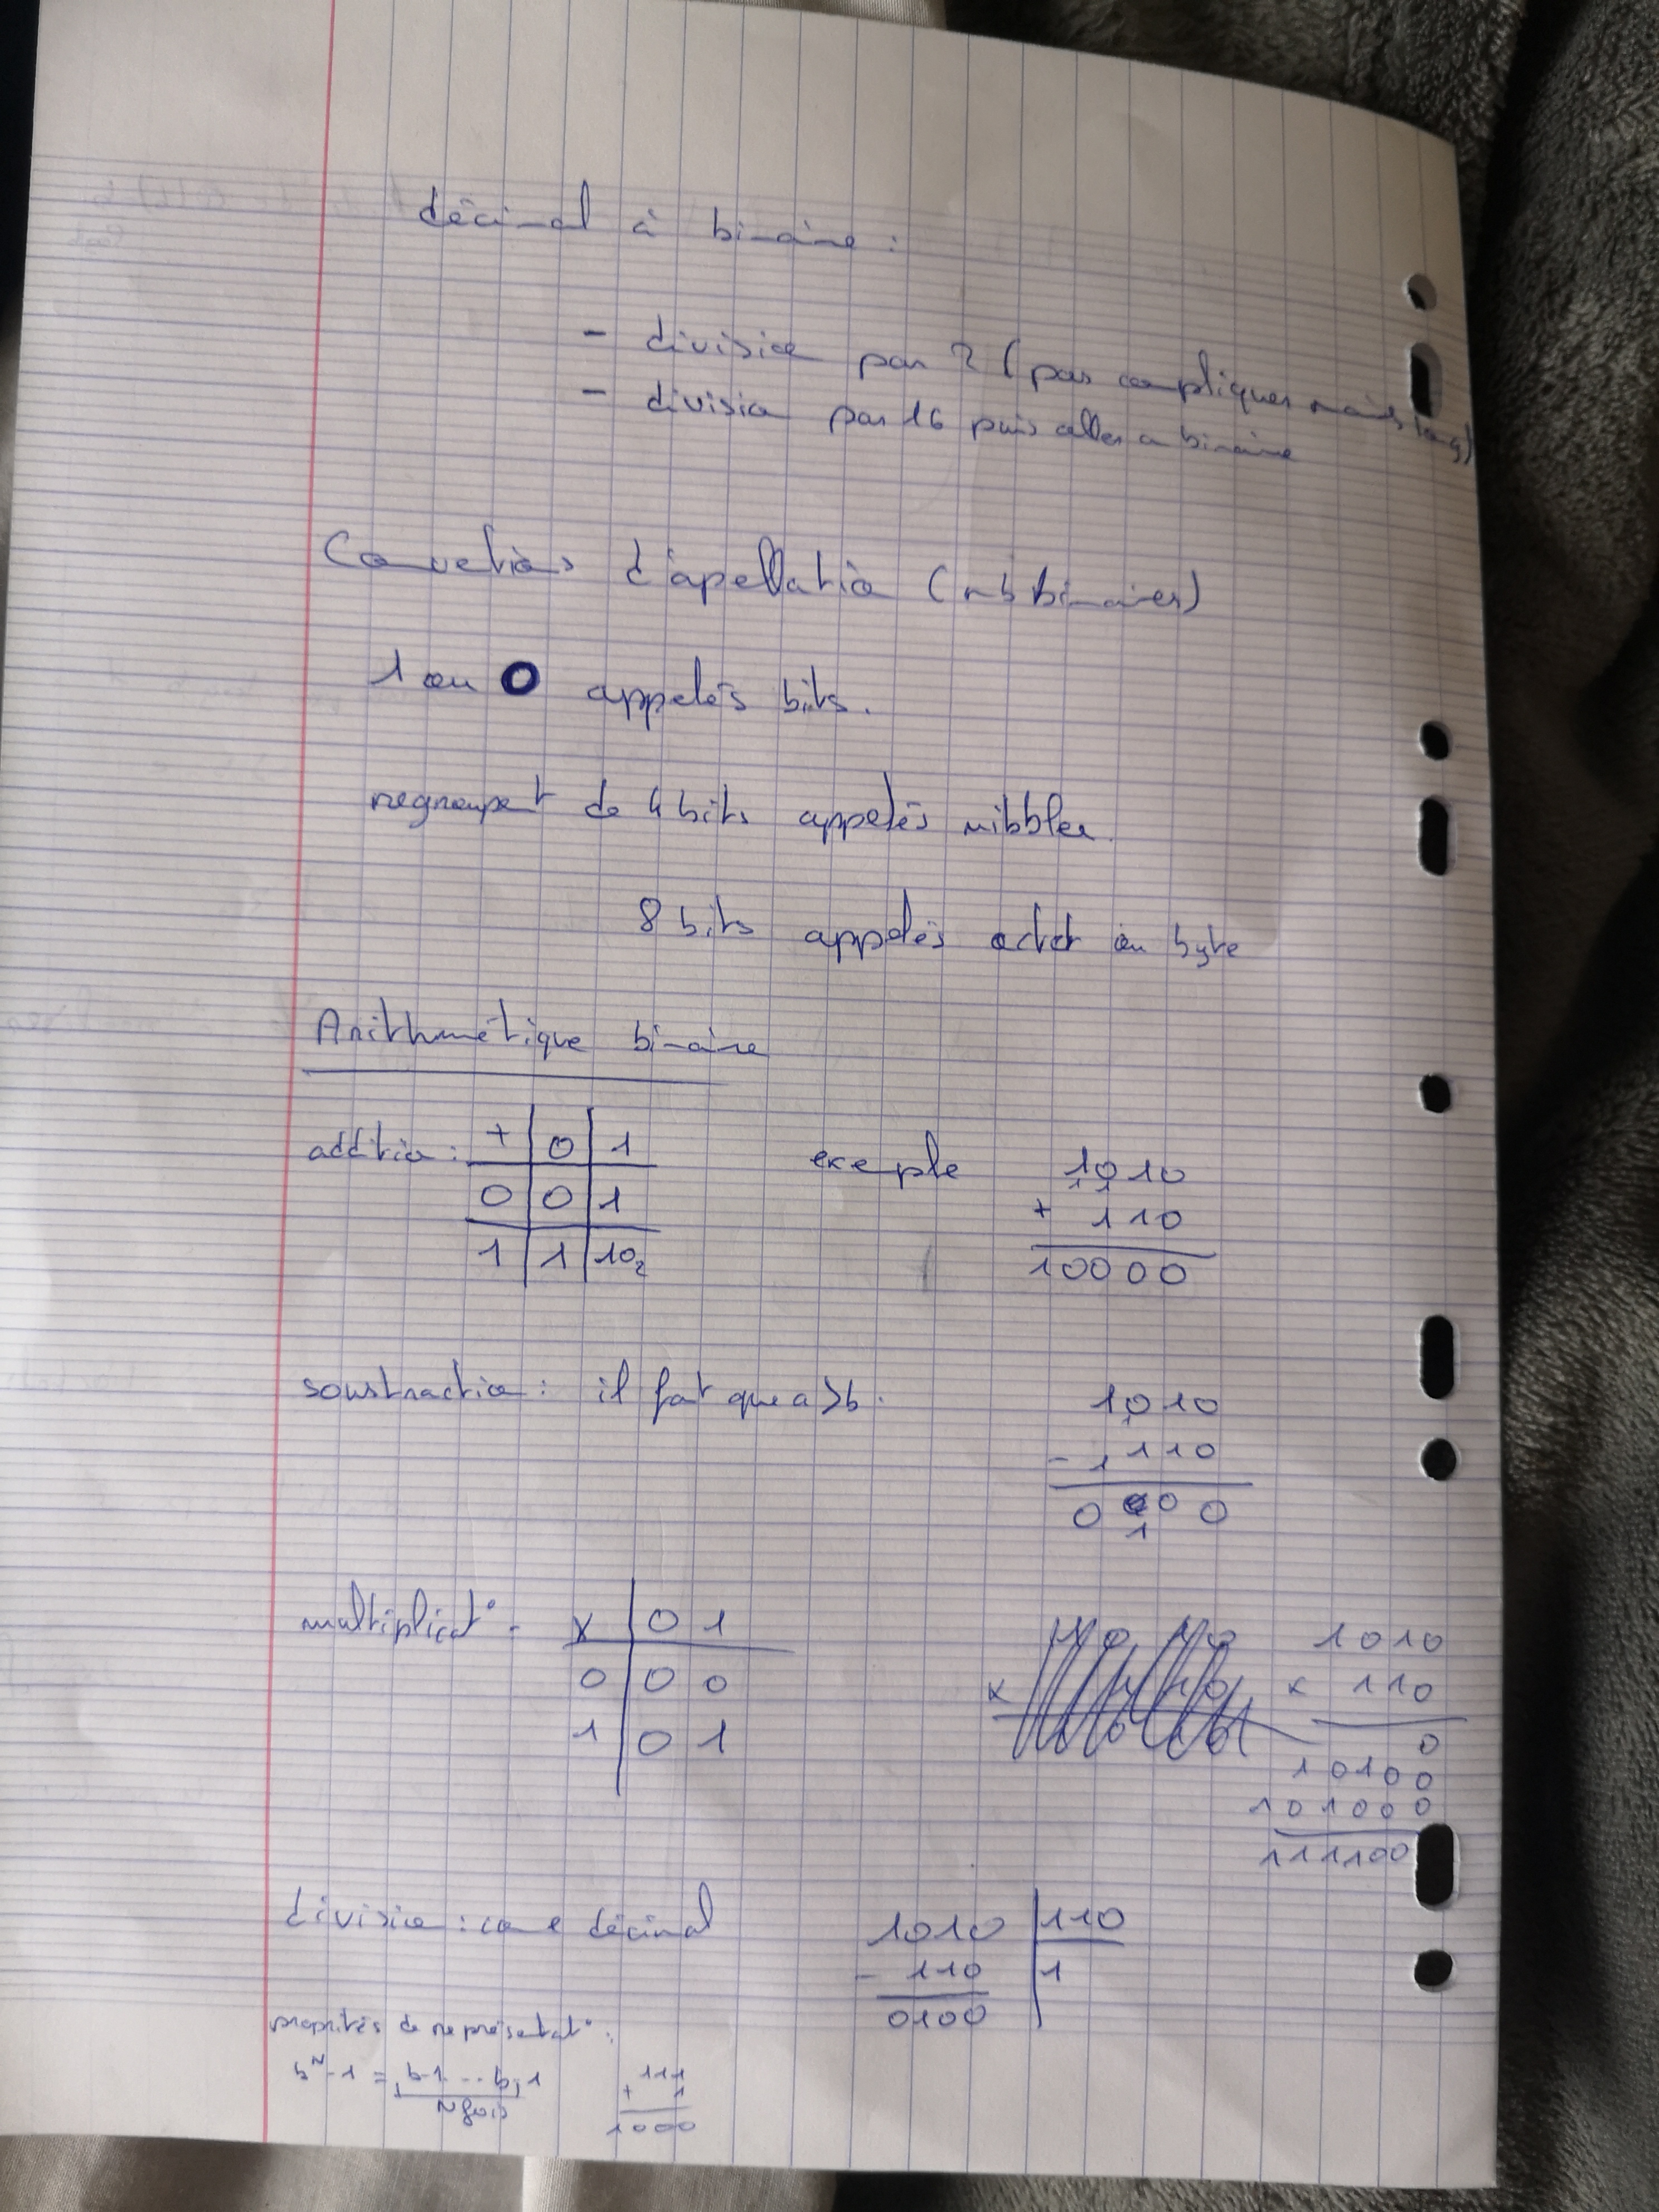 décimal à binaire :
- division par 2 (pas compliquer mais long)
- division par 16 puis aller a binaire
Conventions d'apellation (nb binaires)
1 ou 0 appelés bits.
regroupent de 4 bits appelés nibbles.
8 bits appelés octet ou byte
Arithmétique binaire
addition : + 0 1
0 0 1
1 1 10₂
exemple
1010
+ 110
10000
soustraction : il faut que a>b.
1010
- 110
0 1 0 0
multiplicat° - x 0 1
0 0 0
1 0 1
1010
x 110
0
10100
101000
111100
division : comme décimal
1010 110
- 110 1
0100
propriétés de représentat° :
111
+ 1
1000